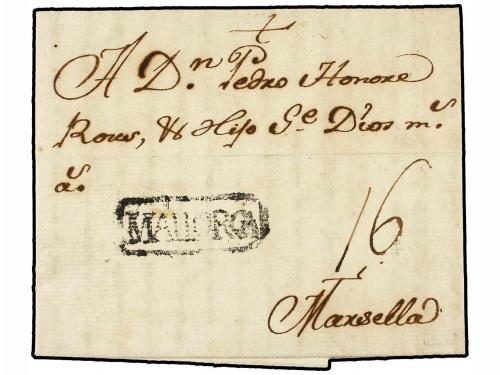 A Dn Pedro Honore
Roux, & Hijo Ge Dios ms
as.
MALLORCA
16
Marsella